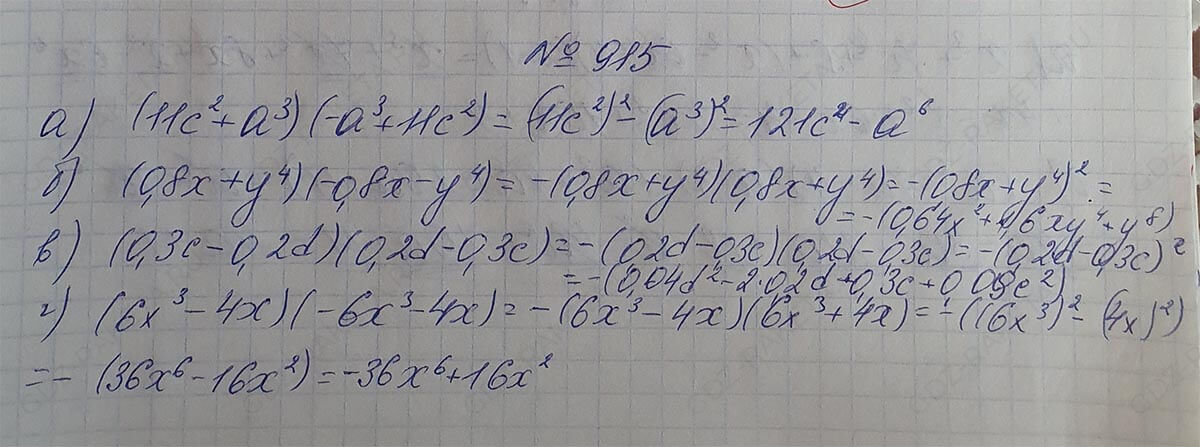 № 915
а) (11c²+a³)(-a³+11c²)=(11c²)²-(a³)²=121c⁴-a⁶
б) (0,8x+y⁴)(-0,8x-y⁴)=-(0,8x+y⁴)(0,8x+y⁴)=-(0,8x+y⁴)²=
=-(0,64x²+1,6xy⁴+y⁸)
в) (0,3c-0,2d)(0,2d-0,3c)=-(0,2d-0,3c)(0,2d-0,3c)=-(0,2d-0,3c)²
=-(0,04d²-2·0,2d+0,3c+0,09c²)
г) (6x³-4x)(-6x³-4x)=-(6x³-4x)(6x³+4x)=-((6x³)²-(4x)²)
=-(36x⁶-16x²)=-36x⁶+16x²